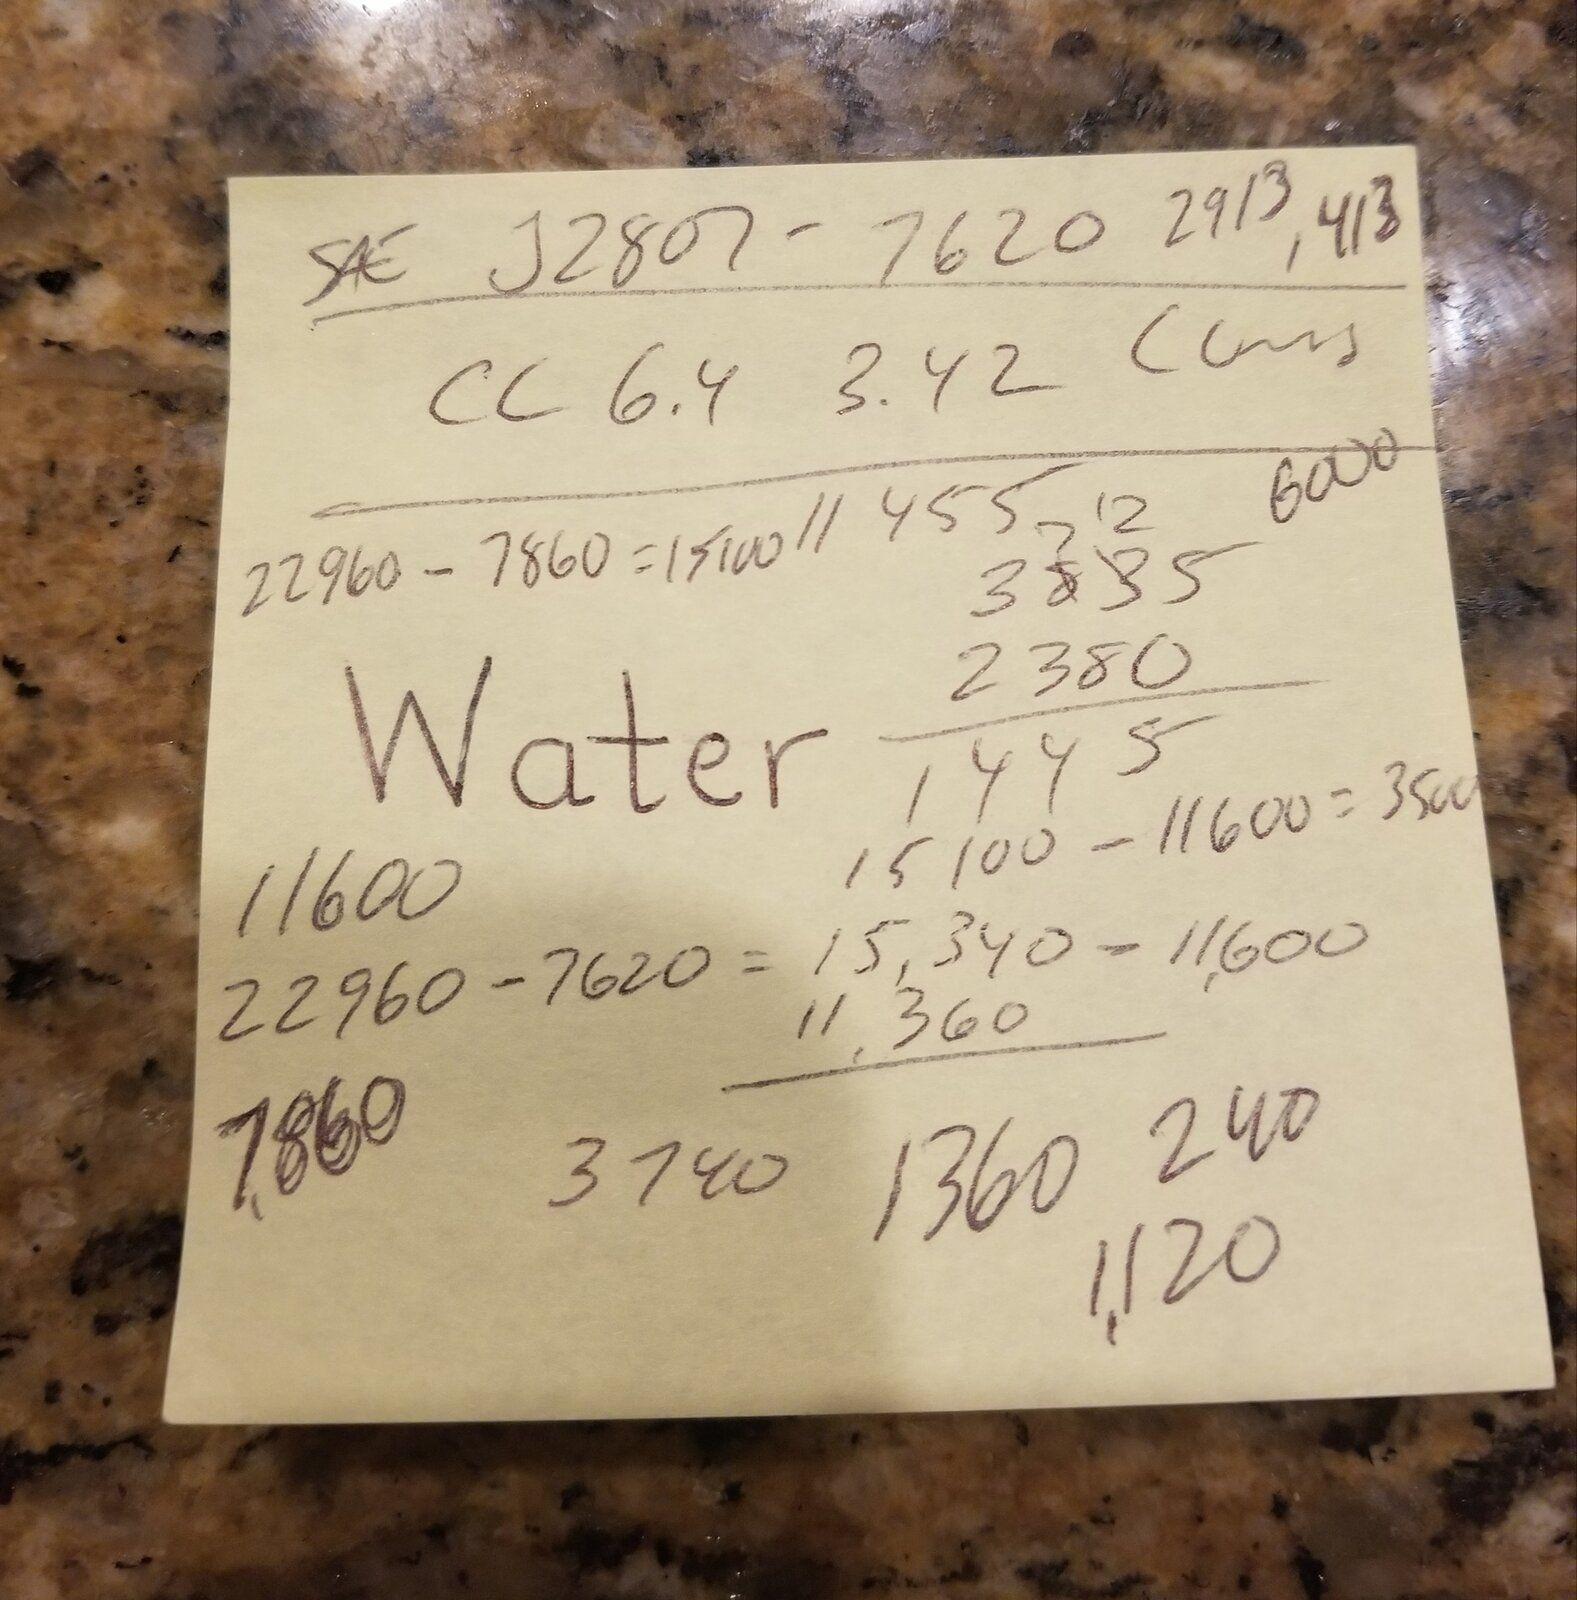 SAE J2807 - 7620 2913, 413
CC 6.4 3.42
6000
22960 - 7860 = 15100 11455
7 12
3835
2380
1445
Water
15100 - 11600 = 3500
11600
22960 - 7620 = 15,340 - 11,600
11,360
7,860
3740 1360 240
1,120